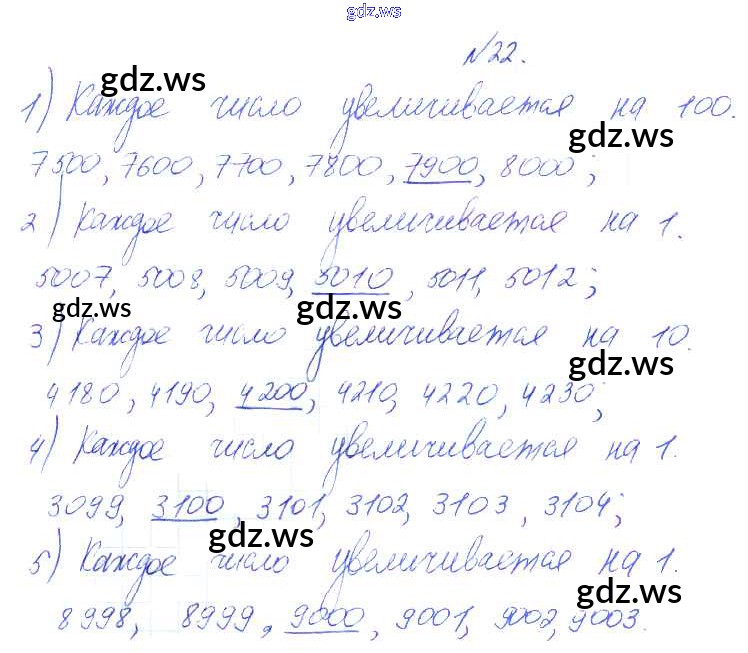 gdz.ws
№22.
gdz.ws
1) Каждое число увеличивается на 100.
gdz.ws
7500, 7600, 7700, 7800, 7900, 8000;
2) Каждое число увеличивается на 1.
5007, 5008, 5009, 5010, 5011, 5012;
gdz.ws gdz.ws
3) Каждое число увеличивается на 10.
gdz.ws
4180, 4190, 4200, 4210, 4220, 4230;
4) Каждое число увеличивается на 1.
3099, 3100, 3101, 3102, 3103, 3104;
gdz.ws
5) Каждое число увеличивается на 1.
gdz.ws
8998, 8999, 9000, 9001, 9002, 9003.